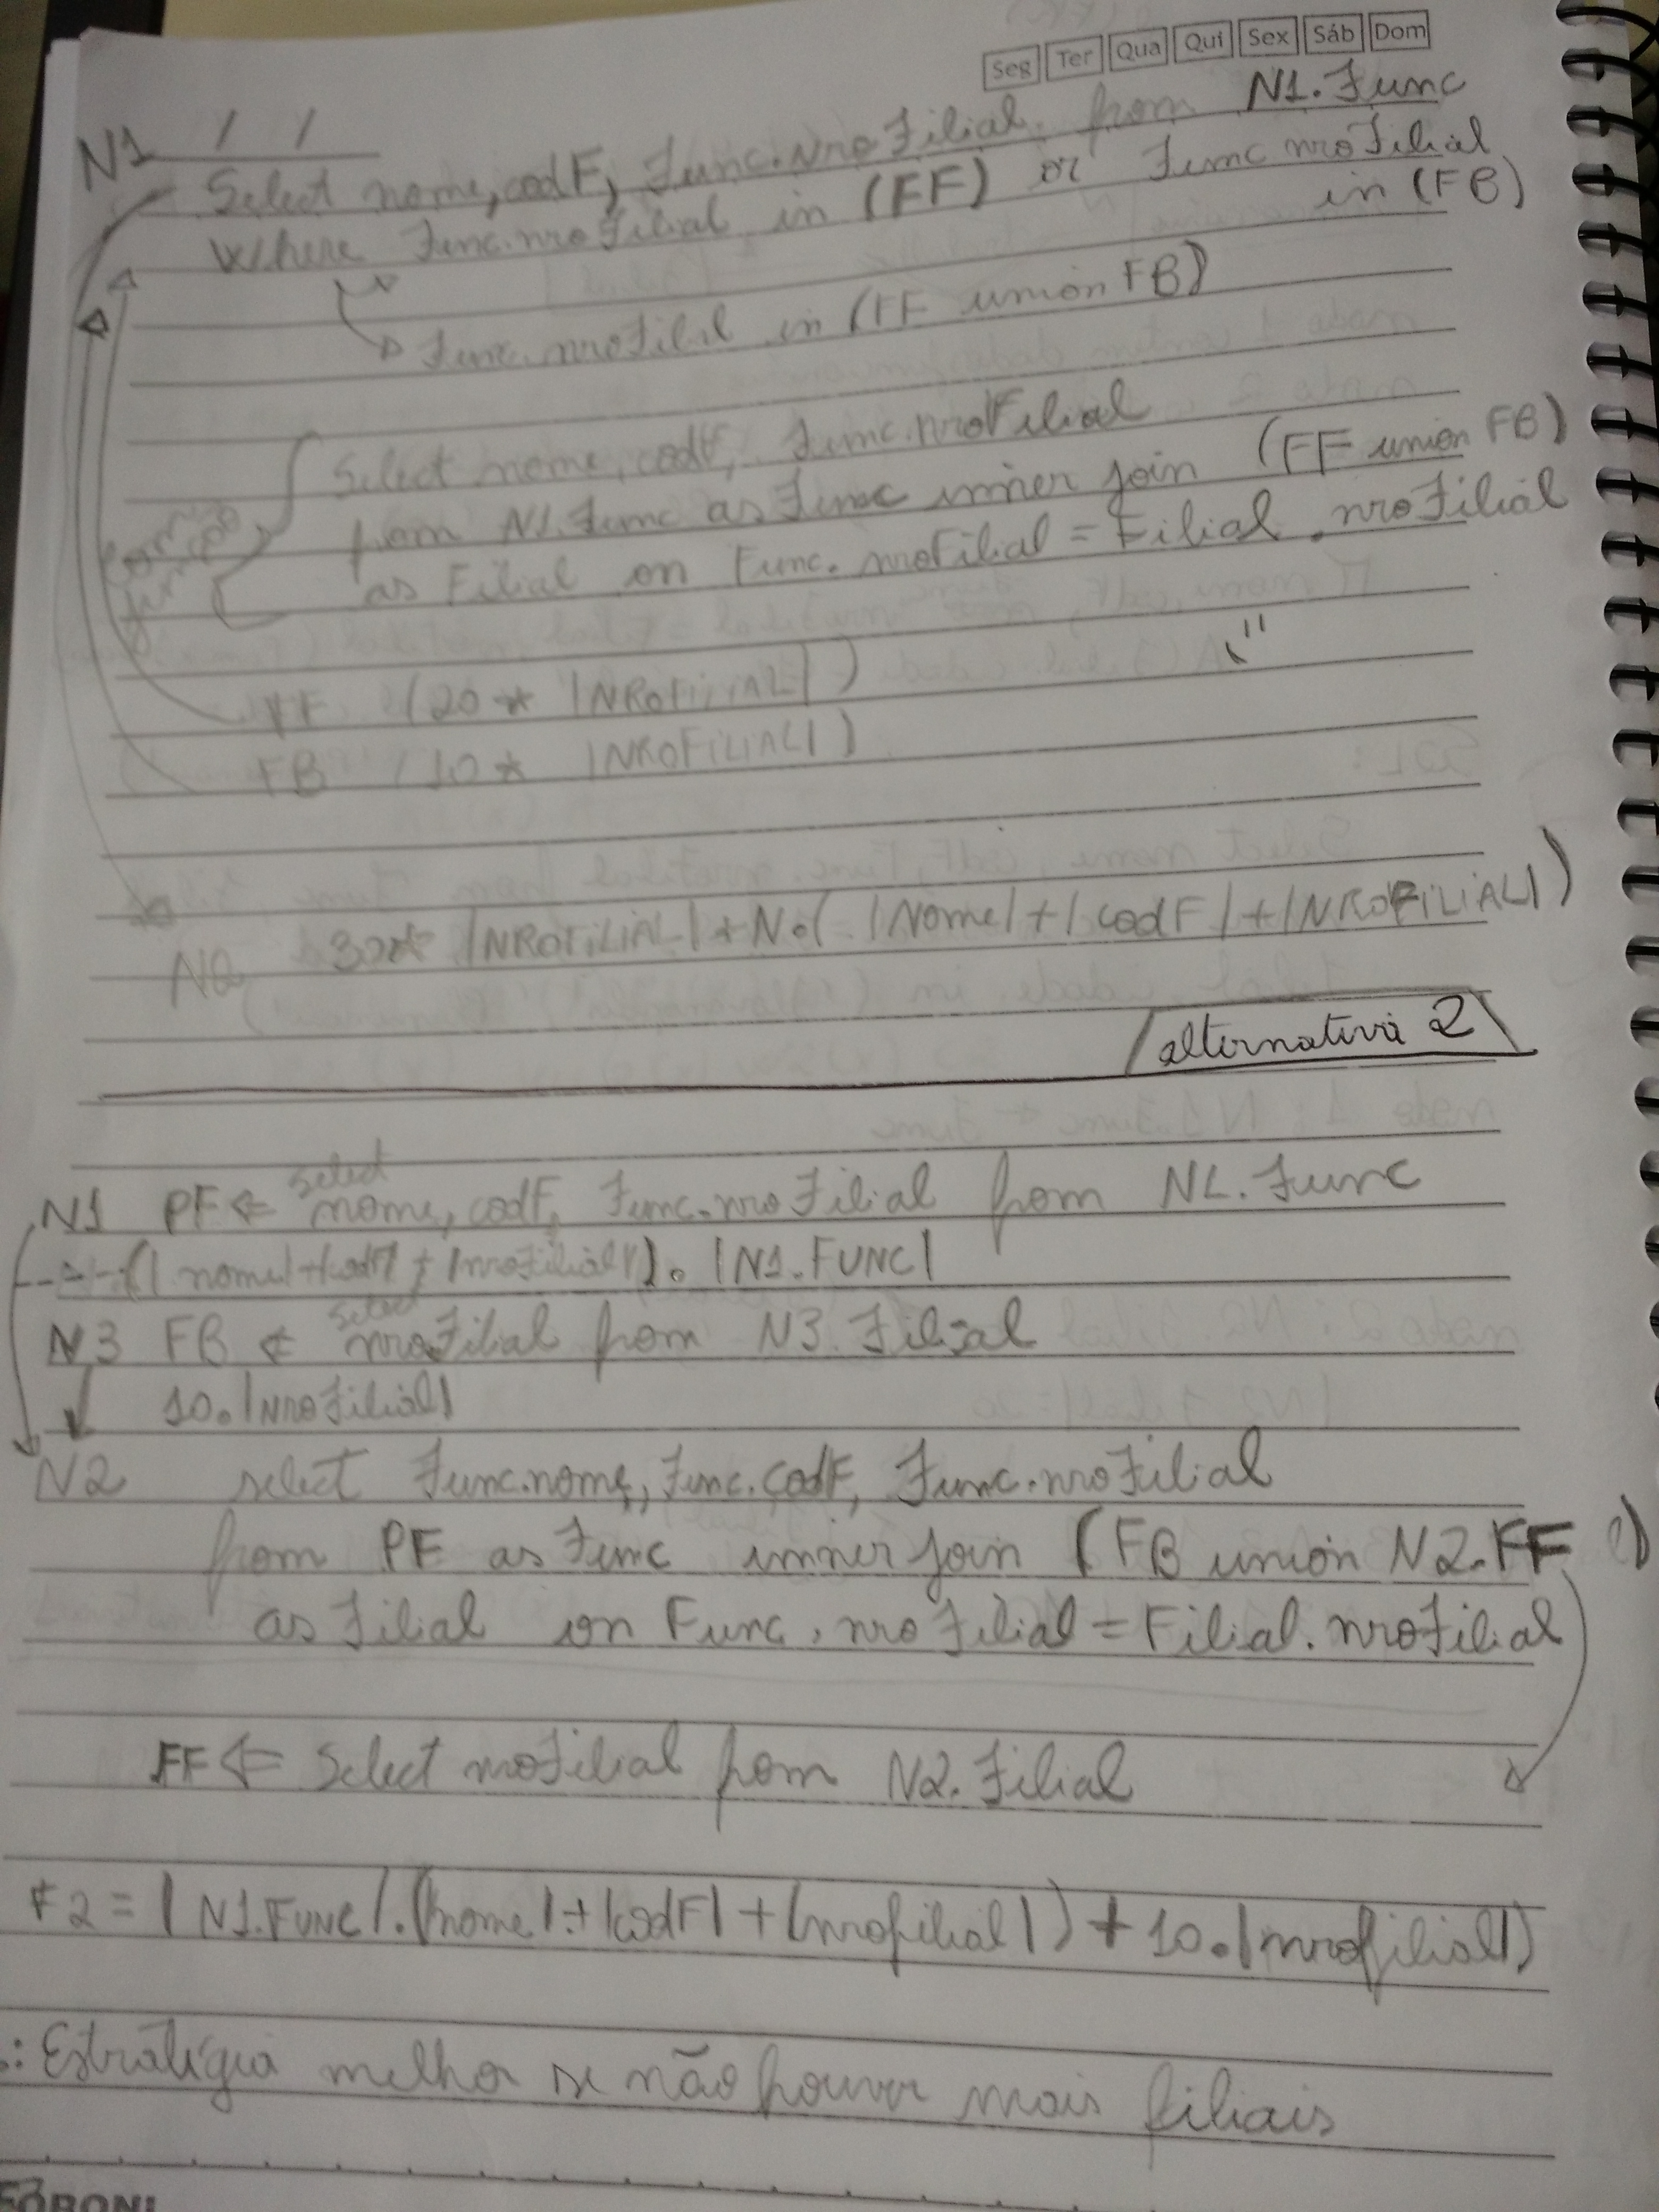 Seg Ter Qua Qui Sex Sáb Dom
N1 / /
Select nome, codF, Func.nroFilial from N1.Func
Where Func.nroFilial in (FF) or Func nroFilial
in (FB)
Func.nroFilil in (FF union FB)
Select nome, codF, Func.nroFilial
from N1.Func as Func inner join (FF union FB)
as Filial on Func.nroFilial = Filial.nroFilial
com
junção
FF (20 * |NROFILIAL|)
FB (10 * |NROFILIAL|)
N2 30* |NROFILIAL| + N.( |Nome| + |codF| + |NROFILIAL|)
alternativa 2
select
N1 PF ⇐ nome, codF, Func.nroFilial from N1.Func
(|nome|+|codF|+|nroFilial|). |N1.FUNC|
select
N3 FB ⇐ nroFilial from N3.Filial
10.|nroFilial|
N2 select Func.nome, Func.codF, Func.nroFilial
from PF as Func inner join (FB union N2.FF)
as Filial on Func.nroFilial = Filial.nroFilial
FF ⇐ Select nroFilial from N2.Filial
F2 = |N1.FUNC|.(|nome|+|codF|+|nrofilial|) + 10.|nrofilial|)
.: Estratégia melhor se não houver mais filiais